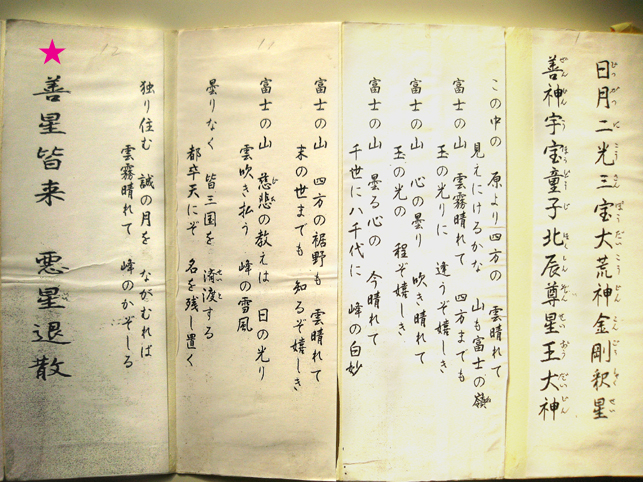 日月二光三宝大荒神金剛釈星
善神宇宝童子北辰尊星王大神
この中の 原より四方の 雲晴れて
見えにけるかな 山も富士の嶺
富士の山 雲霧晴れて 四方までも
玉の光りに 逢うぞ嬉しき
富士の山 心の曇り 吹き晴れて
玉の光の 程ぞ嬉しき
富士の山 曇る心の 今晴れて
千世に八千代に 峰の白妙
11
富士の山 四方の裾野も 雲晴れて
末の世までも 知るぞ嬉しき
富士の山 慈悲の教えは 日の光り
雲吹き払う 峰の雪風
曇りなく 皆三国を 済渡する
都卒天にぞ 名を残し置く
12
独り住む 誠の月を ながむれば
雲霧晴れて 峰のかぞしる
善星皆来 悪星退散